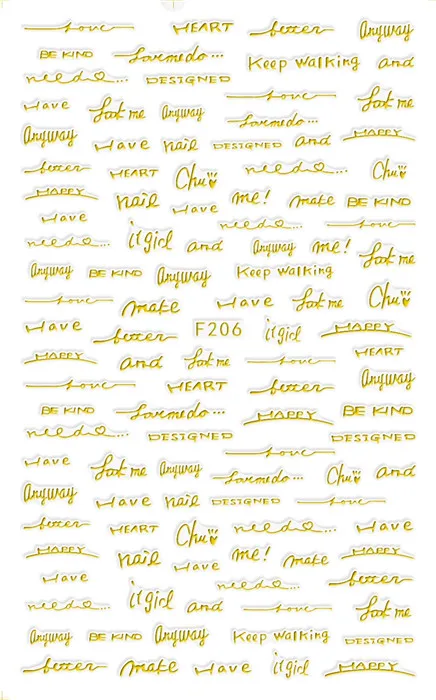 Love HEART better Anyway
BE KIND Keep Walking and
need... DESIGNED Love
Have Look me Anyway Look me
Anyway Have nail DESIGNED and HAPPY
better HEART Chu need... Chu
HAPPY nail Have me! make BE KIND
Have need... Love
need... it girl and Anyway me! Look me
Anyway BE KIND Anyway Keep Walking
Love make Have Look me Chu
Have better F206 it girl HAPPY
HAPPY and Look me Love HEART
Love HEART better Anyway
BE KIND HAPPY BE KIND
need... DESIGNED Love DESIGNED
Have Look me Anyway Chu and
Anyway Have nail DESIGNED Love
better HEART Chu need... Have
HAPPY nail Have me! make HAPPY
Have need... better
need... it girl and Love Look me
Anyway BE KIND Anyway Keep Walking DESIGNED
better make Have it girl HAPPY